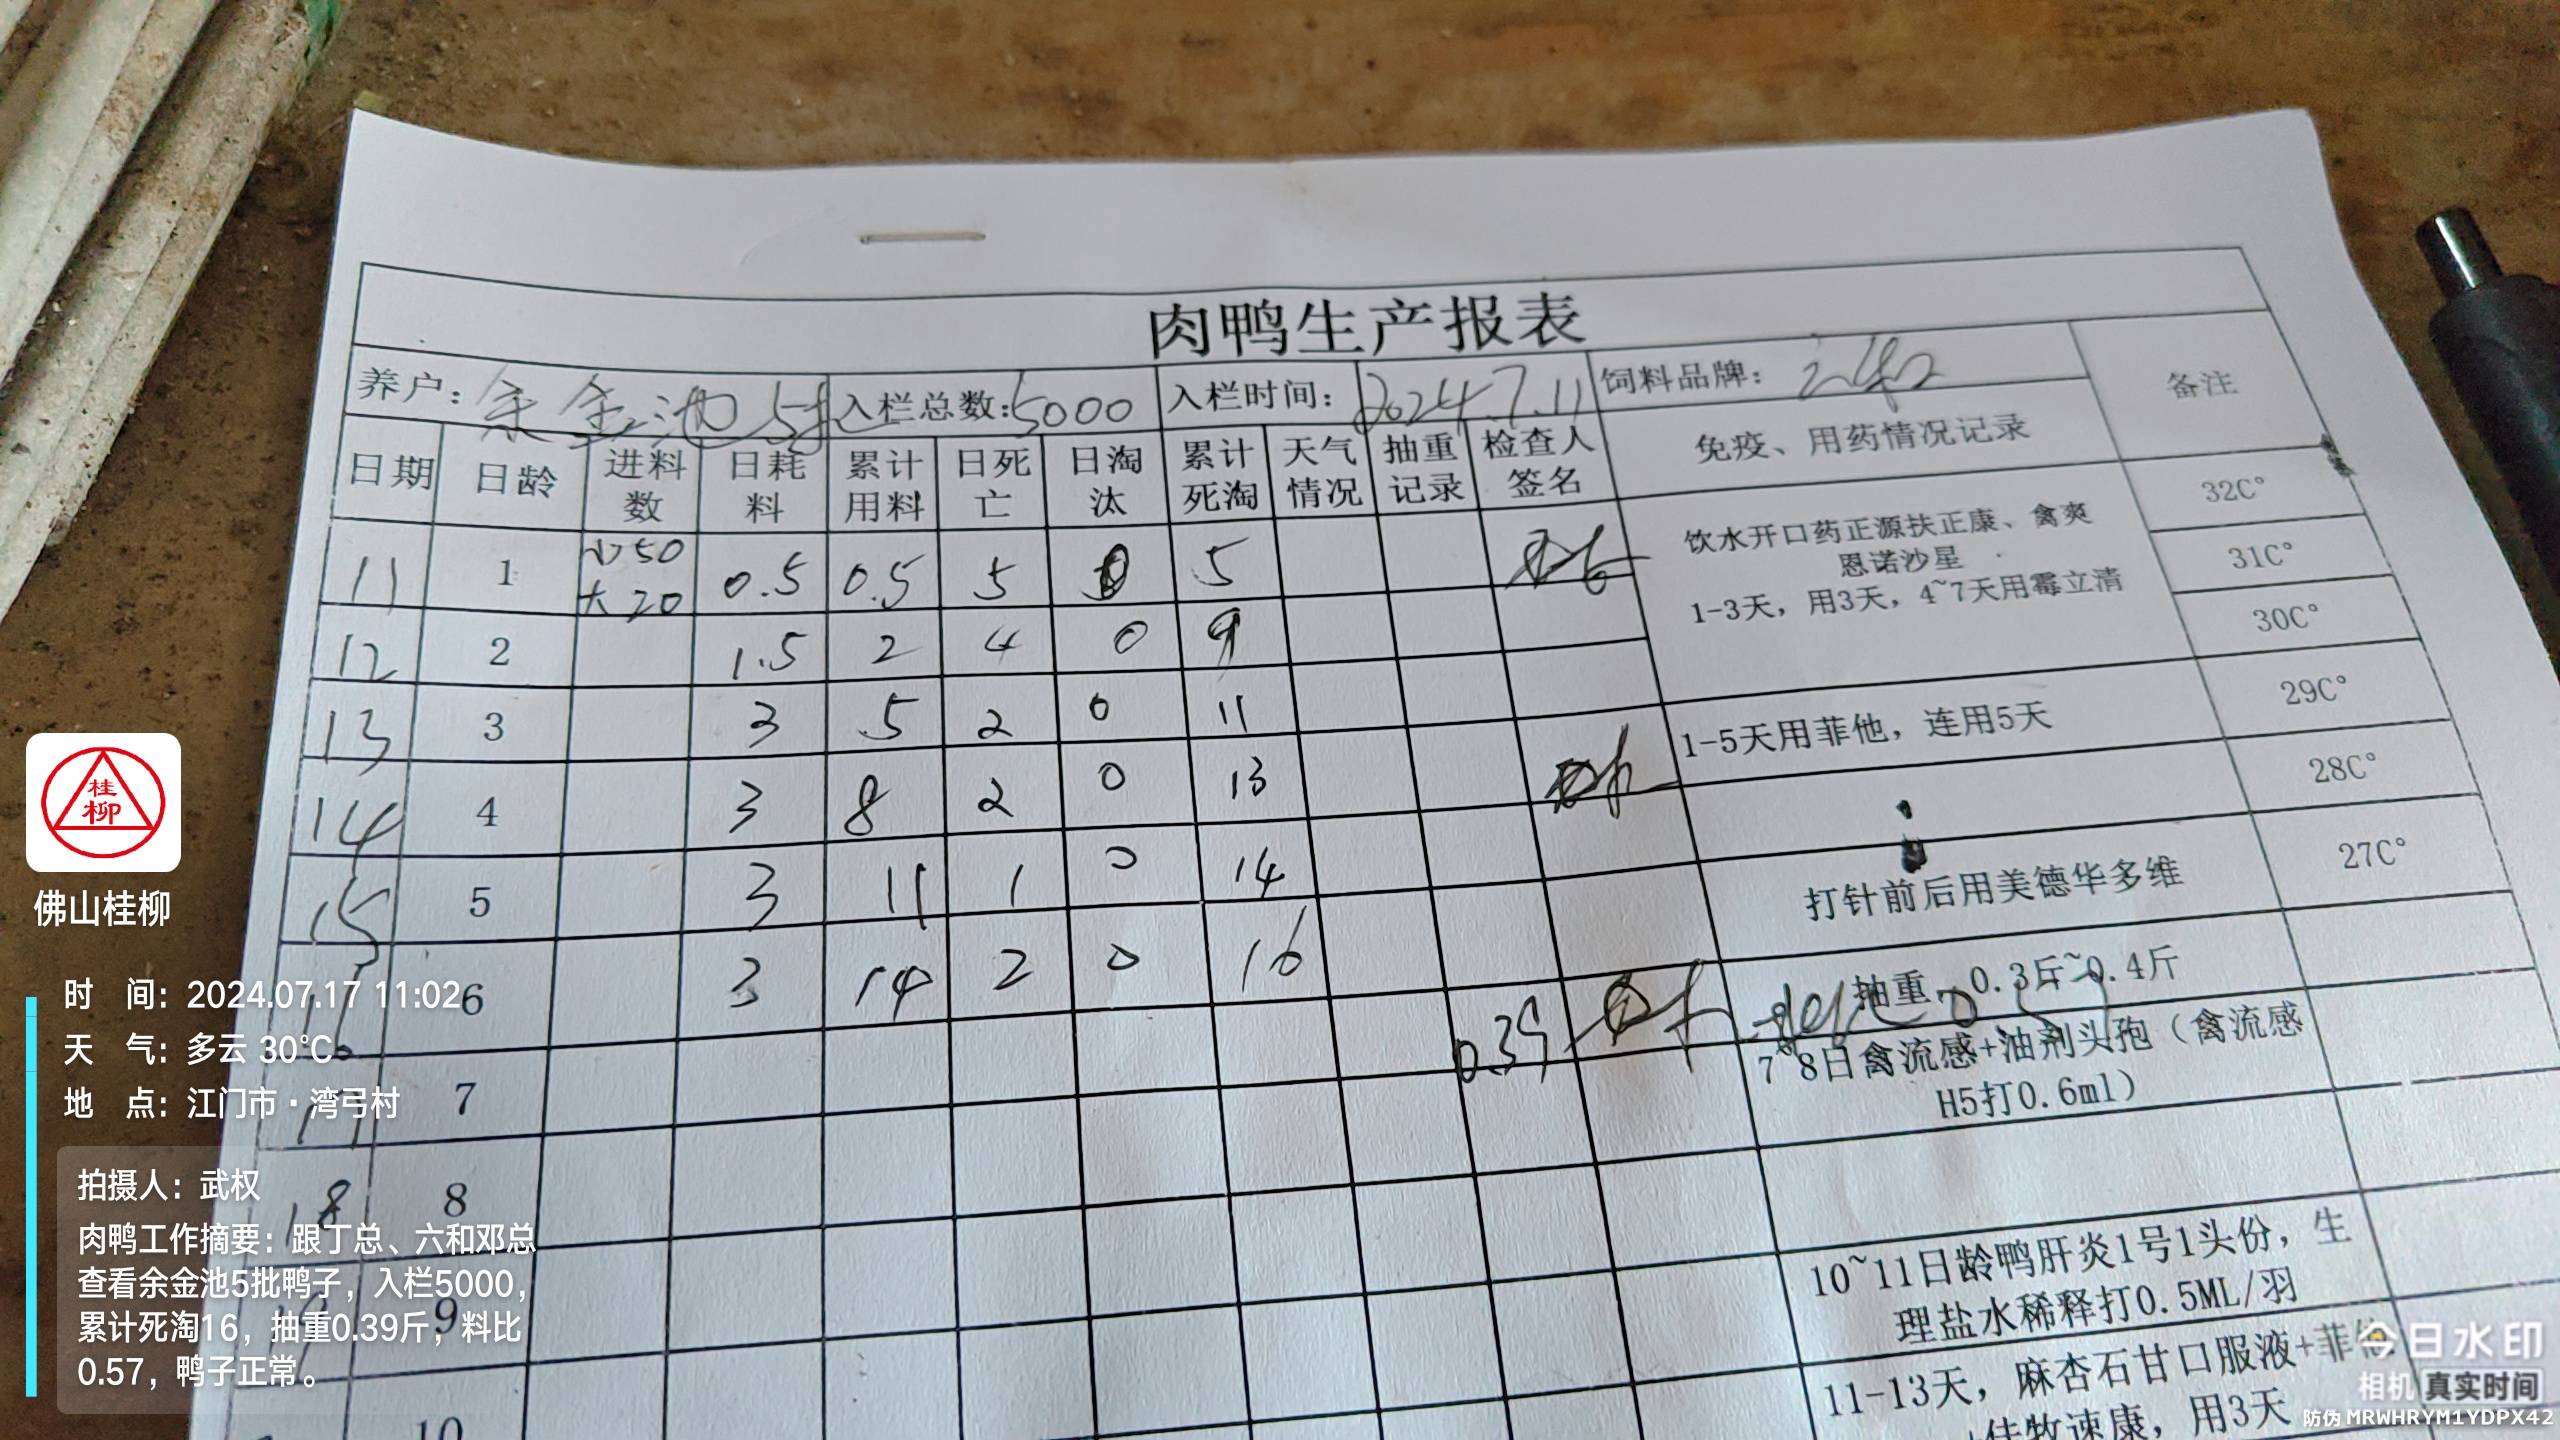 肉鸭生产报表
养户：余金池5批 入栏总数：5000 入栏时间：2024.7.11 饲料品牌：六和 备注
日期 日龄 进料数 日耗料 累计用料 日死亡 日淘汰 累计死淘 天气情况 抽重记录 检查人签名 免疫、用药情况记录
11 1 小50 大20 0.5 0.5 5 0 5
12 2 1.5 2 4 0 9
13 3 3 5 2 0 11
14 4 3 8 2 0 13
15 5 3 11 1 0 14
16 6 3 14 2 0 16
17 7 0.39
18 8
19 9
10
饮水开口药正源扶正康、禽爽
恩诺沙星
1-3天，用3天，4~7天用霉立清
1-5天用菲他，连用5天
打针前后用美德华多维
抽重 0.3斤~0.4斤
料比 0.57
7~8日禽流感+油剂头孢（禽流感
H5打0.6ml）
10~11日龄鸭肝炎1号1头份，生
理盐水稀释打0.5ML/羽
11-13天，麻杏石甘口服液+菲他
+佳牧速康，用3天
32C°
31C°
30C°
29C°
28C°
27C°
桂
柳
佛山桂柳
时 间：2024.07.17 11:02
天 气：多云 30℃
地 点：江门市·湾弓村
拍摄人：武权
肉鸭工作摘要：跟丁总、六和邓总
查看余金池5批鸭子，入栏5000，
累计死淘16，抽重0.39斤，料比
0.57，鸭子正常。
今日水印
相机 真实时间
防伪 MRWHRYM1YDPX42